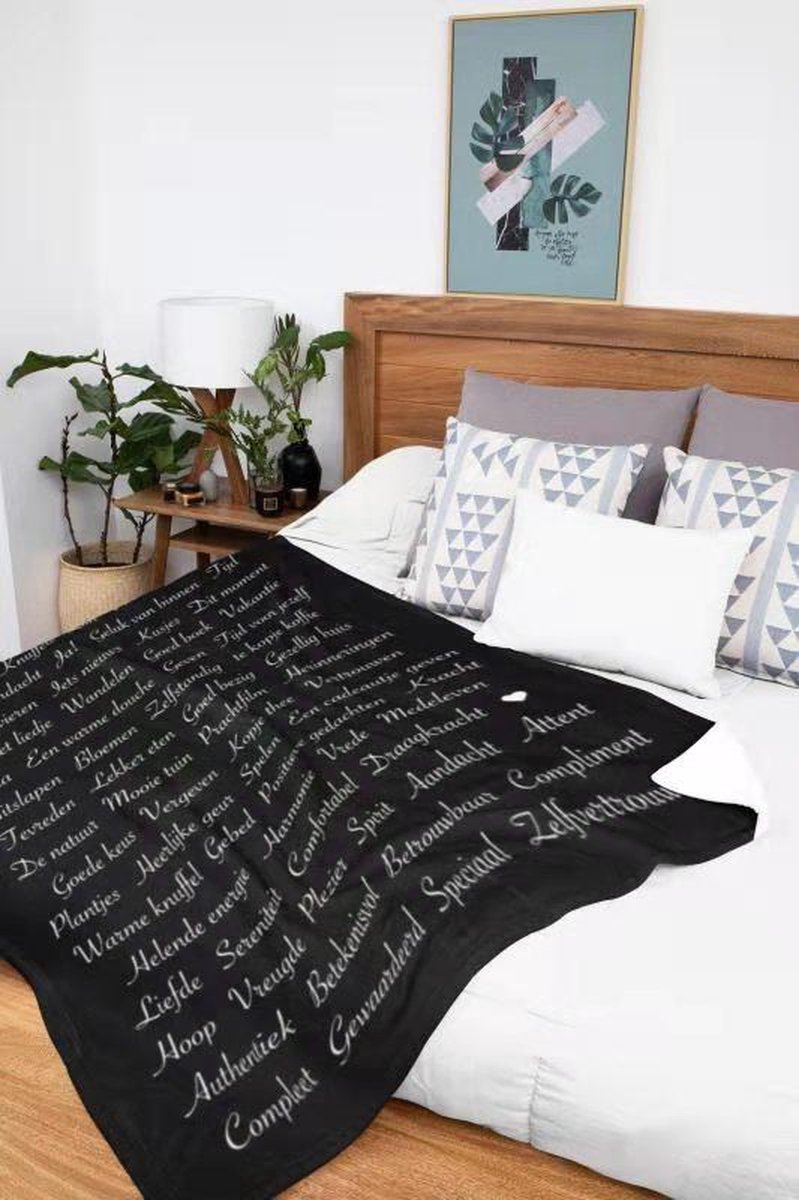 Tijd
Geluk van binnen
Ja! Kusjes Dit moment
Iets nieuws Goed boek Vakantie
Wandelen Geven Tijd voor jezelf
liedje Een warme douche Zelfstandig 1e kopje koffie
Bloemen Goed bezig Gezellig huis
uitslapen Lekker eten Prachtfilm Herinneringen
Tevreden Mooie tuin Kopje thee Vertrouwen
De natuur Vergeven Spelen Een cadeautje geven
Goede keus Heerlijke geur Positieve gedachten Kracht
Plantjes Gebed Harmonie Vrede Medeleven
Warme knuffel Comfortabel Draagkracht
Helende energie Plezier Spirit Aandacht Attent
Liefde Sereniteit Betrouwbaar Compliment
Hoop Vreugde Betekenisvol Speciaal Zelfvertrouw
Authentiek Gewaardeerd
Compleet